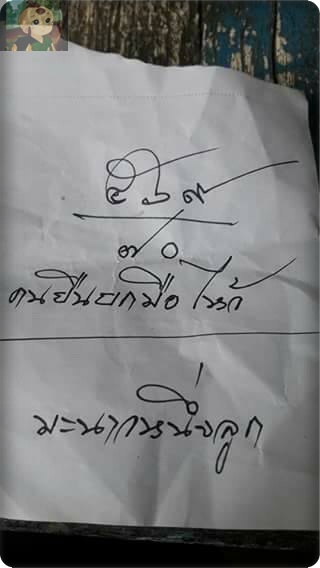 ๕๖๙
๗๐
คนยืนยกมือไหว้
มะนาวหนึ่งลูก